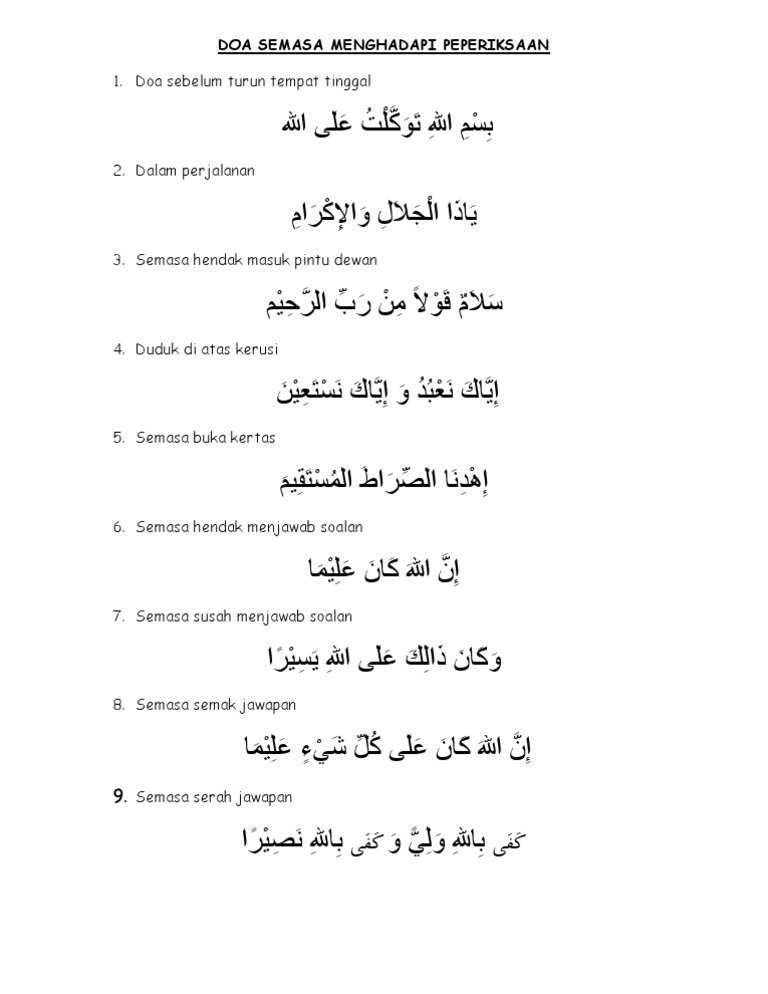 DOA SEMASA MENGHADAPI PEPERIKSAAN
1. Doa sebelum turun tempat tinggal
بِسْمِ اللهِ تَوَكَّلْتُ عَلَى الله
2. Dalam perjalanan
يَاذَا الْجَلاَلِ وَالإِكْرَامِ
3. Semasa hendak masuk pintu dewan
سَلاَمٌ قَوْلاً مِنْ رَبِّ الرَّحِيْم
4. Duduk di atas kerusi
إِيَّاكَ نَعْبُدُ وَ إِيَّاكَ نَسْتَعِيْنَ
5. Semasa buka kertas
إِهْدِنَا الصِّرَاطَ المُسْتَقِيمَ
6. Semasa hendak menjawab soalan
إِنَّ اللهَ كَانَ عَلِيْمَا
7. Semasa susah menjawab soalan
وَكَانَ ذَالِكَ عَلَى اللهِ يَسِيْرًا
8. Semasa semak jawapan
إِنَّ اللهَ كَانَ عَلَى كُلِّ شَيْءٍ عَلِيْمَا
9. Semasa serah jawapan
كَفَى بِاللهِ وَلِيًّ وَ كَفَى بِاللهِ نَصِيْرًا